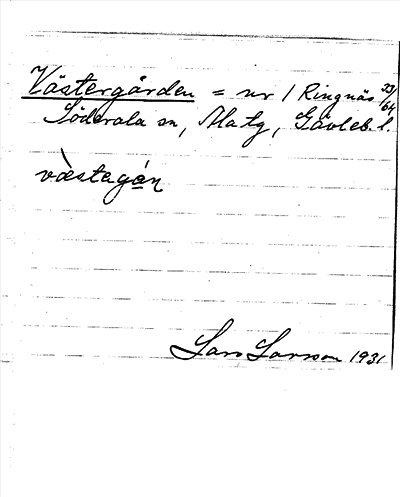 Västergården = nr 1 Ringnäs 23/64
Söderala sn, Ala tg, Gävleb. l.
væ̀stagán
Lars Larsson 1931